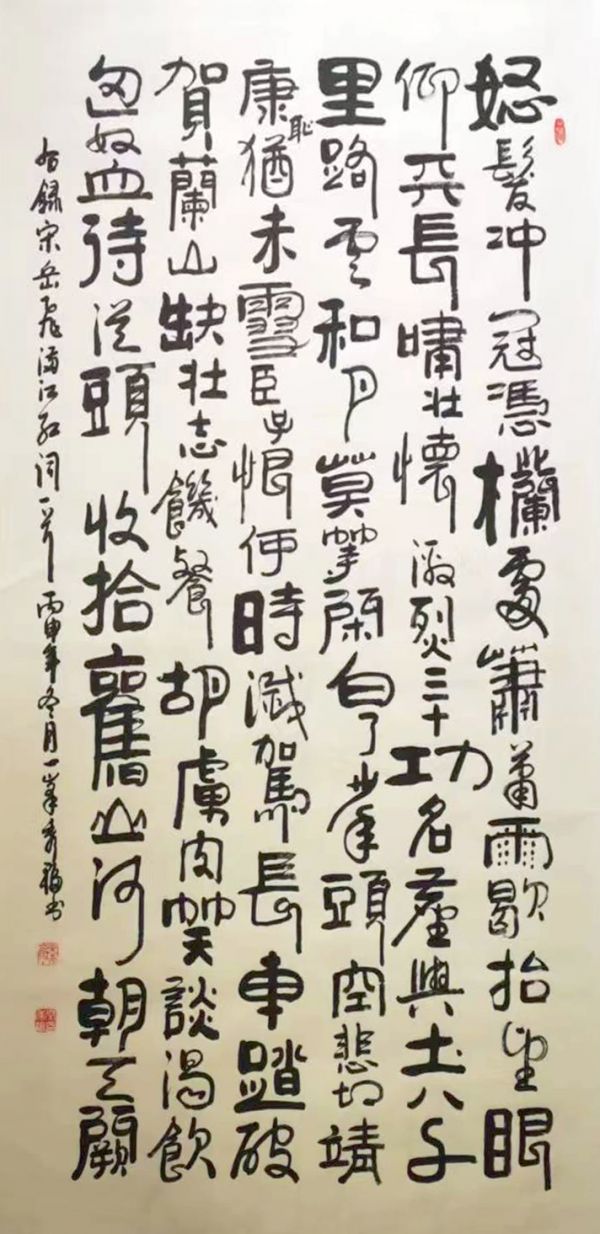 怒髮冲冠憑欄處蕭蕭雨歇抬望眼
仰天長嘯壯懷激烈三十功名塵與土八千
里路雲和月莫等閑白了少年頭空悲切靖
康恥猶未雪臣子恨何時滅駕長車踏破
賀蘭山缺壯志饑餐胡虜肉笑談渴飲
匈奴血待從頭收拾舊山河朝天闕
右錄宋岳飛滿江紅詞一首丙申年冬月一峯秀书